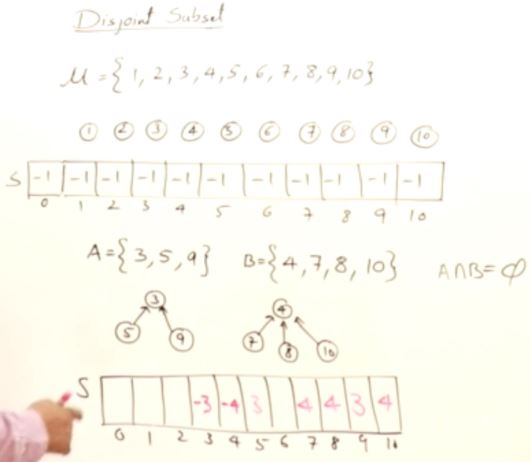 Disjoint Subset
𝓤 = {1, 2, 3, 4, 5, 6, 7, 8, 9, 10}
1 2 3 4 5 6 7 8 9 10
S -1 -1 -1 -1 -1 -1 -1 -1 -1 -1 -1
0 1 2 3 4 5 6 7 8 9 10
A={3, 5, 9} B={4, 7, 8, 10} A∩B= ϕ
3 4
5 9 7 8 10
S -3 -4 3 4 4 3 4
0 1 2 3 4 5 6 7 8 9 10